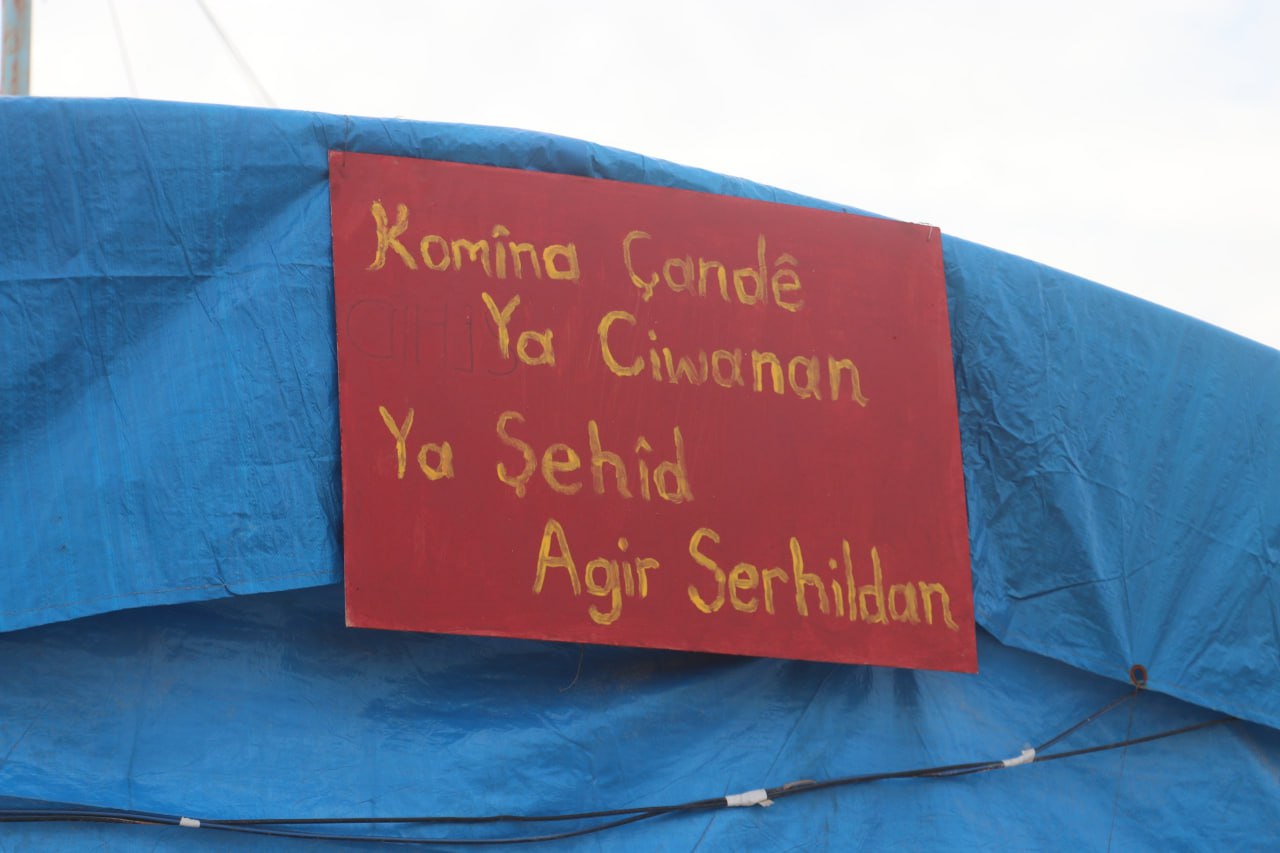 Komîna Çandê
Ya Ciwanan
Ya Şehîd
Agir Serhildan